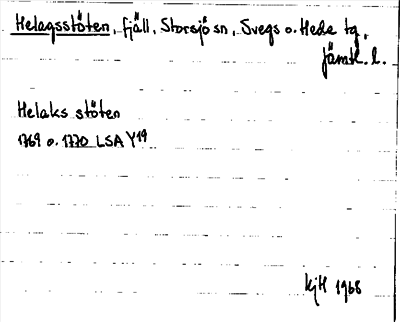 Helagsstöten, fjäll, Storsjö sn, Svegs o. Hede tg,
Jämtl. l.
Helaks stöten
1769 o. 1770 LSA Y19
KjH 1968